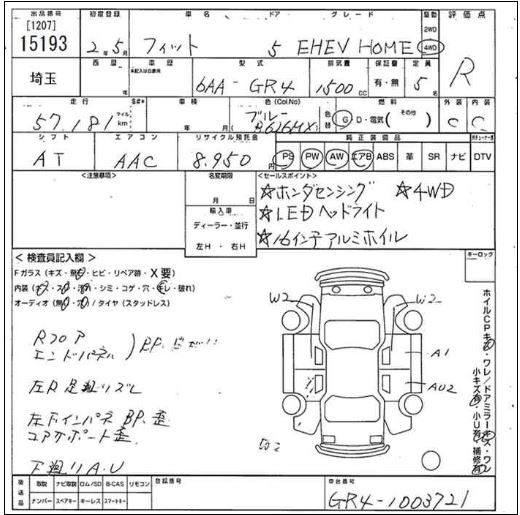 出品番号 初度登録 車名 ドア グレード 型 評価点
[1207]
15193 2年5月 フィット 5 EHEV HOME 2WD 4WD R
埼玉 車歴 型式 排気量 保証書 定員 5名
6AA-GR4 1500cc 有・無
走行 車検 色(Col.No) 燃料 外装 内装
57,181 マイル km 年 月 ブルー G D・電気 (その他) C C
シフト エアコン リサイクル預託金 純正装備品
AT AAC 8,950円 PS PW AW エアB ABS 革 SR ナビ DTV
<注意事項> 名変期限 <セールスポイント>
月 日
輸入車
ディーラー・並行
左H・右H
☆ホンダセンシング ☆4WD
☆LEDヘッドライト
☆16インチアルミホイル
キーロック
<検査員記入欄>
Fガラス(キズ・飛石・ヒビ・リペア跡・X要)
シミ・コゲ・穴
オーディオ / タイヤ(スタッドレス)
Rフロア
エンドパネル
左R足廻りズレ
左下インパネ BP.歪
コアサポート歪
下廻りA.U
W2 W2
A1
AU2
後送品 取説 ナビ取説 ロム/SD B-CAS リモコン 登録番号 車台番号
ナンバー スペアキー キーレス スマートキー GR4-1003721